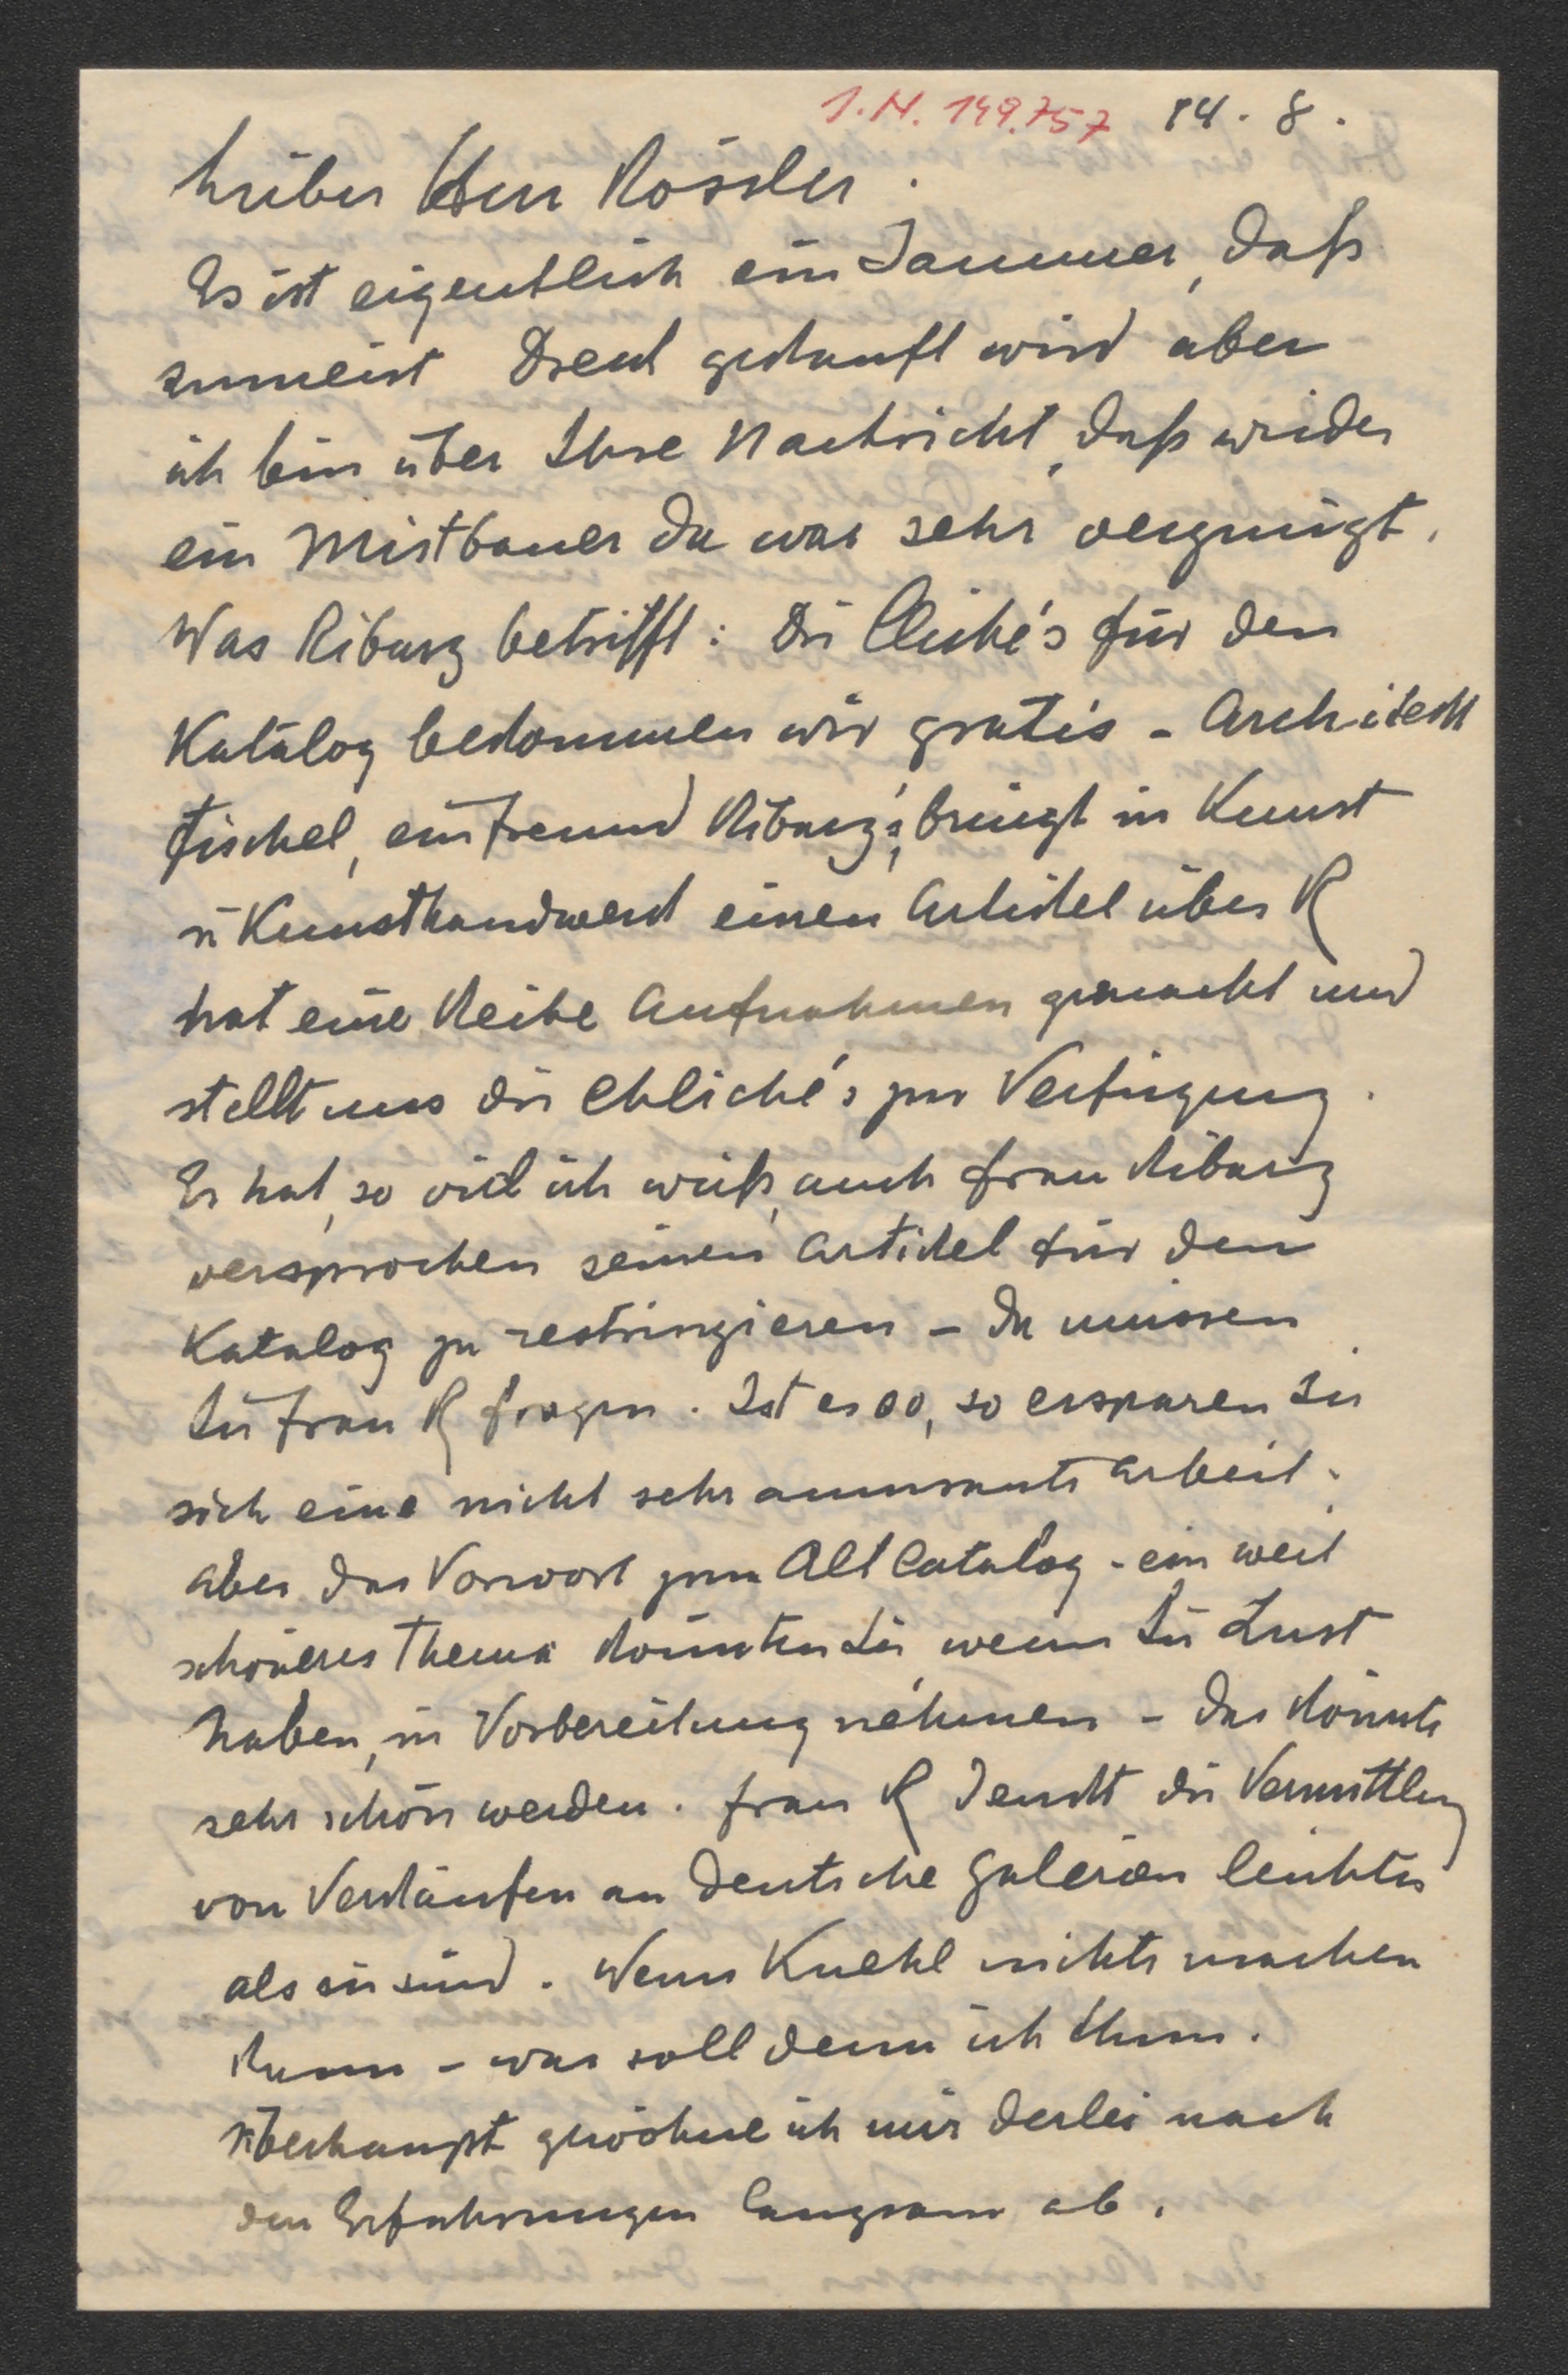 I.N. 149.757 14. 8.
Lieber Herr Rössler.
Es ist eigentlich ein Jammer, daß
zumeist Dreck gekauft wird aber
ich bin über Ihre Nachricht, daß wieder
ein Mistbauer da war sehr vergnügt.
Was Ribarz betrifft: Die Cliché's für den
Katalog bekommen wir gratis - Architekt
Fischel, ein Freund Ribarz's, bringt in Kunst
u Kunsthandwerk einen Artikel über R
hat eine Reihe Aufnahmen gemacht und
stellt uns die Chliché's zur Verfügung.
Er hat, so viel ich weiß, auch Frau Ribarz
versprochen seinen Artikel für den
Katalog zu restringieren - da müssen
Sie Frau R fragen. Ist es so, so ersparen Sie
sich eine nicht sehr amusante Arbeit.
Aber das Vorwort zum Alt Catalog - ein weit
schöneres Thema könnten Sie, wenn Sie Lust
haben, in Vorbereitung nehmen - das könnte
sehr schön werden. Frau R denkt die Vermittlung
von Verkäufen an deutsche Galerien leichter
als sie sind. Wenn Kuehl nichts machen
kann - was soll denn ich thun.
Überhaupt gewöhne ich mir derlei nach
den Erfahrungen langsam ab.